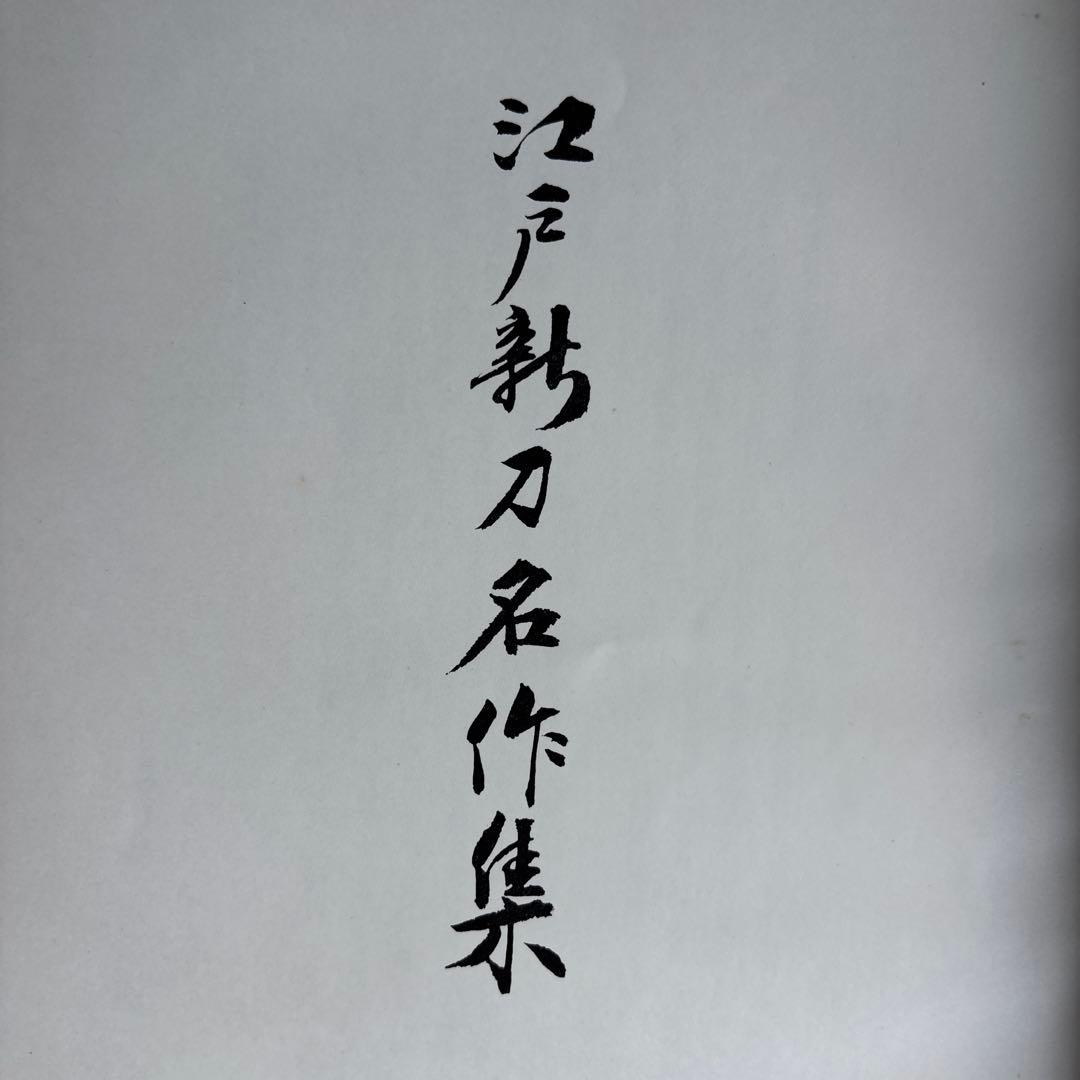 江戸新刀名作集